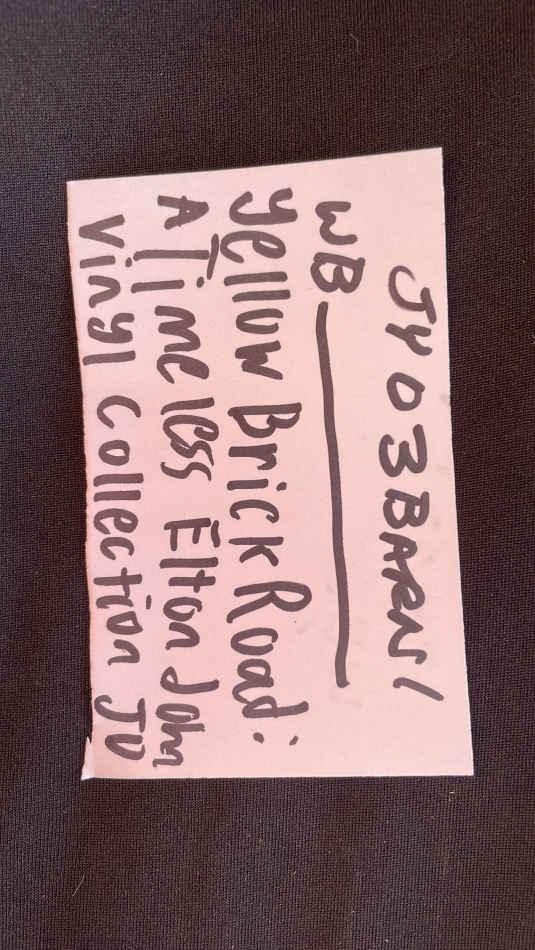 JY03BARN1
WB
Yellow Brick Road:
A Timeless Elton John
Vinyl Collection JD